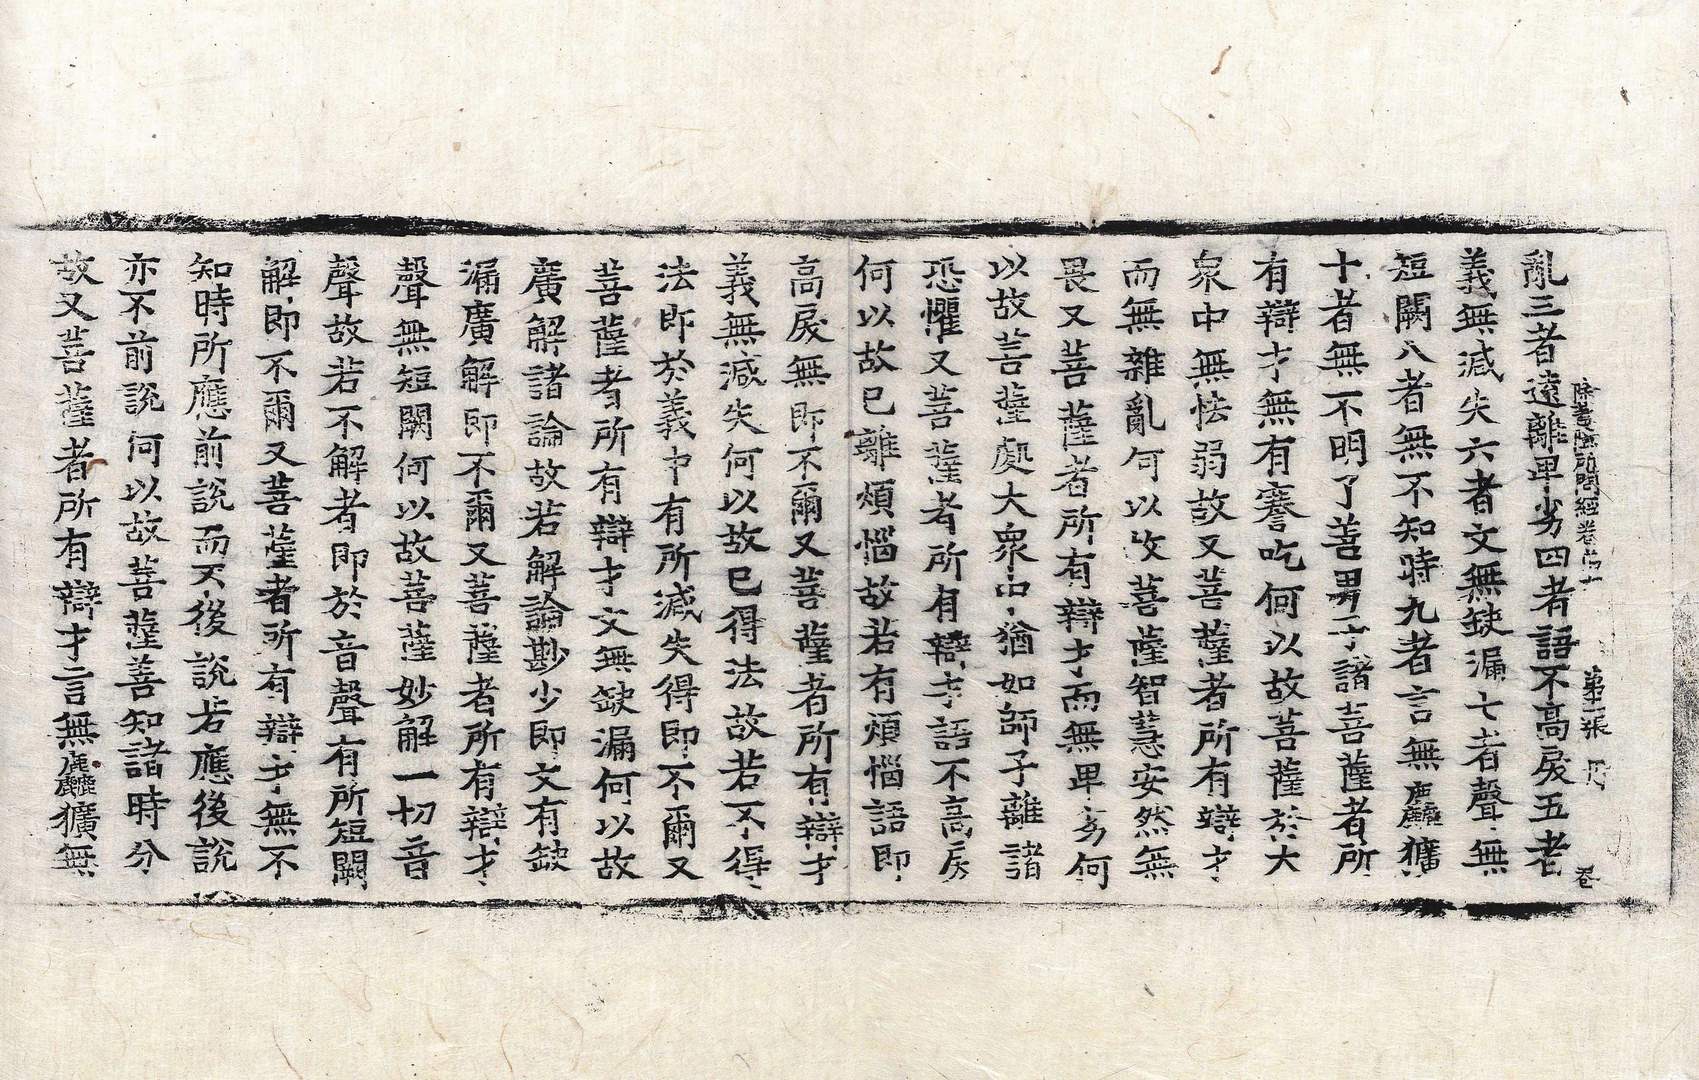 除蓋障所問經卷第十 第二張 卷
亂三者遠離卑劣四者語不高戾五者
義無減失六者文無缺漏七者聲無
短闕八者無不知時九者言無麤獷
十者無不明了善男子諸菩薩者所
有辯才無有謇吃何以故菩薩於大
衆中無怯弱故又菩薩者所有辯才
而無雜亂何以故菩薩智慧安然無
畏又菩薩者所有辯才而無卑劣何
以故菩薩處大衆中猶如師子離諸
恐懼又菩薩者所有辯才語不高戾
何以故已離煩惱故若有煩惱語即
高戾無即不爾又菩薩者所有辯才
義無減失何以故已得法故若不得
法即於義中有所減失得即不爾又
菩薩者所有辯才文無缺漏何以故
廣解諸論故若解論尠少即文有缺
漏廣解即不爾又菩薩者所有辯才
聲無短闕何以故菩薩妙解一切音
聲故若不解者即於音聲有所短闕
解即不爾又菩薩者所有辯才無不
知時所應前說而不後說若應後說
亦不前說何以故菩薩善知諸時分
故又菩薩者所有辯才言無麤獷無